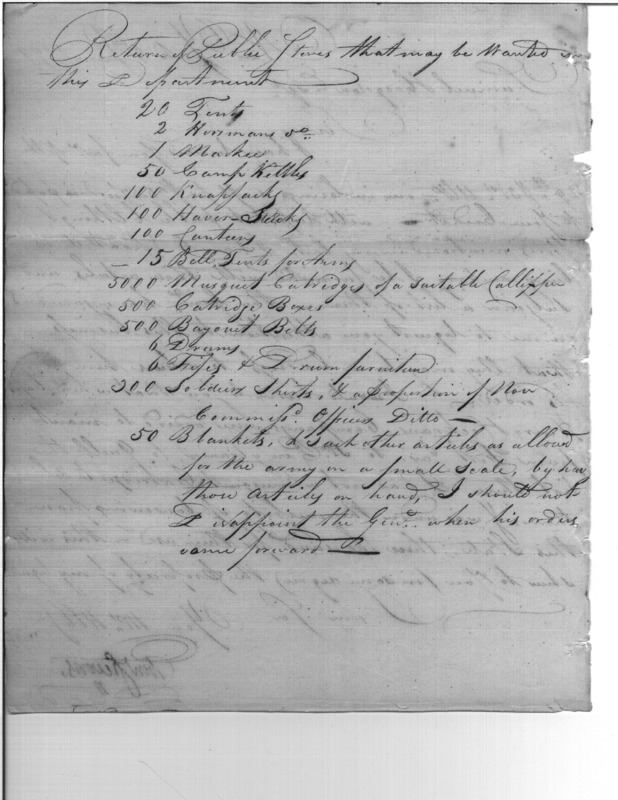 Return of Public Stores that may be Wanted in
this Department
20 Tents
2 Horsmans do
1 Markee
50 Camp Kettles
100 Knapsacks
100 Haver Sacks
100 Canteens
15 Bell Tents for Arms
5000 Musquet Catridges of a Suitable Callipper
500 Catridge Boxes
500 Bayonet Belts
6 Drums
6 Fifes & Drum furniture
200 Soldiers Shirts, & a Proportion of Non
Commissd. Officers Ditto
50 Blankets, & Such other articles as allowed
for the army on a small Scale, by having
those Articles on hand, I should not
Disappoint the Genl. when his orders
came forward